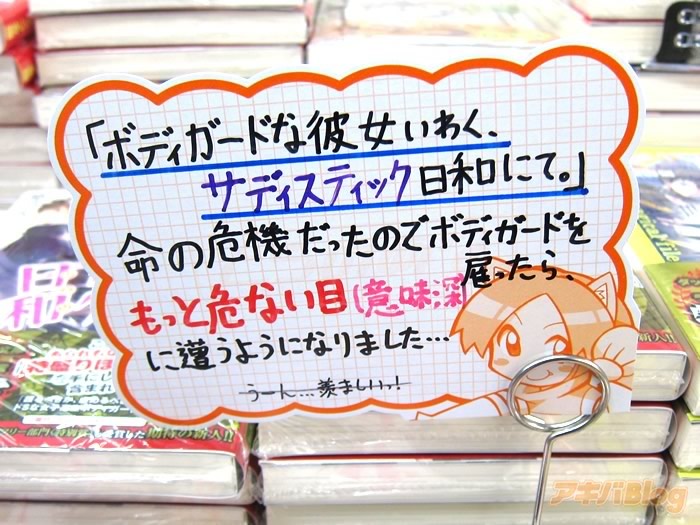 「ボディガードな彼女いわく、
サディスティック日和にて。」
命の危機だったのでボディガードを
雇ったら、
もっと危ない目(意味深)
に遭うようになりました…
うーん…羨ましいっ!
日
和
期待の新人!!
アキバBlog